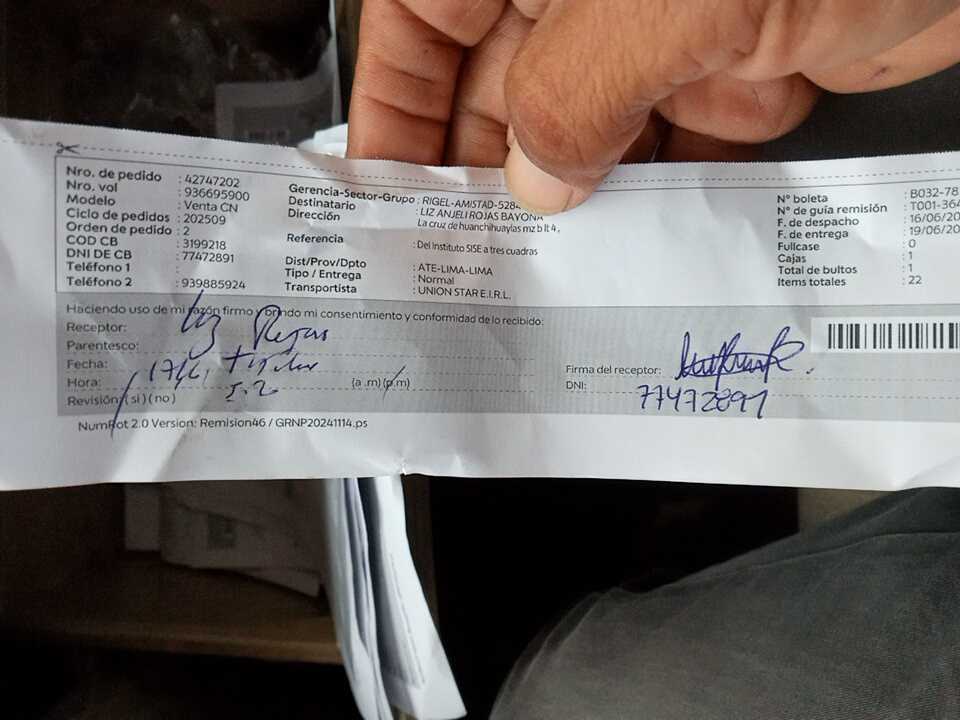 Nro. de pedido : 42747202
Nro. vol : 936695900
Modelo : Venta CN
Ciclo de pedidos : 202509
Orden de pedido : 2
COD CB : 3199218
DNI DE CB : 77472891
Teléfono 1 :
Teléfono 2 : 939885924
Gerencia-Sector-Grupo : RIGEL-AMISTAD-5284
Destinatario : LIZ ANJELI ROJAS BAYONA
Dirección La cruz de huanchihuaylas mz b lt 4,
Referencia : Del Instituto SISE a tres cuadras
Dist/Prov/Dpto : ATE-LIMA-LIMA
Tipo / Entrega : Normal
Transportista : UNION STAR E.I.R.L.
N° boleta : B032-78
N° de guía remisión : T001-364
F. de despacho : 16/06/20
F. de entrega : 19/06/20
Fullcase : 0
Cajas : 1
Total de bultos : 1
Items totales : 22
Haciendo uso de mi razón firmo brindo mi consentimiento y conformidad de lo recibido:
Receptor: Liz Rojas
Parentesco:
Fecha:
Hora: (a.m)(p.m)
Revisión: (si) (no)
Firma del receptor:
DNI: 77472891
NumRot 2.0 Version: Remision46 / GRNP20241114.ps